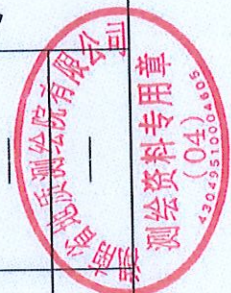 湖南省地质测绘院有限公司
测绘资料专用章
(04)
43049510004605